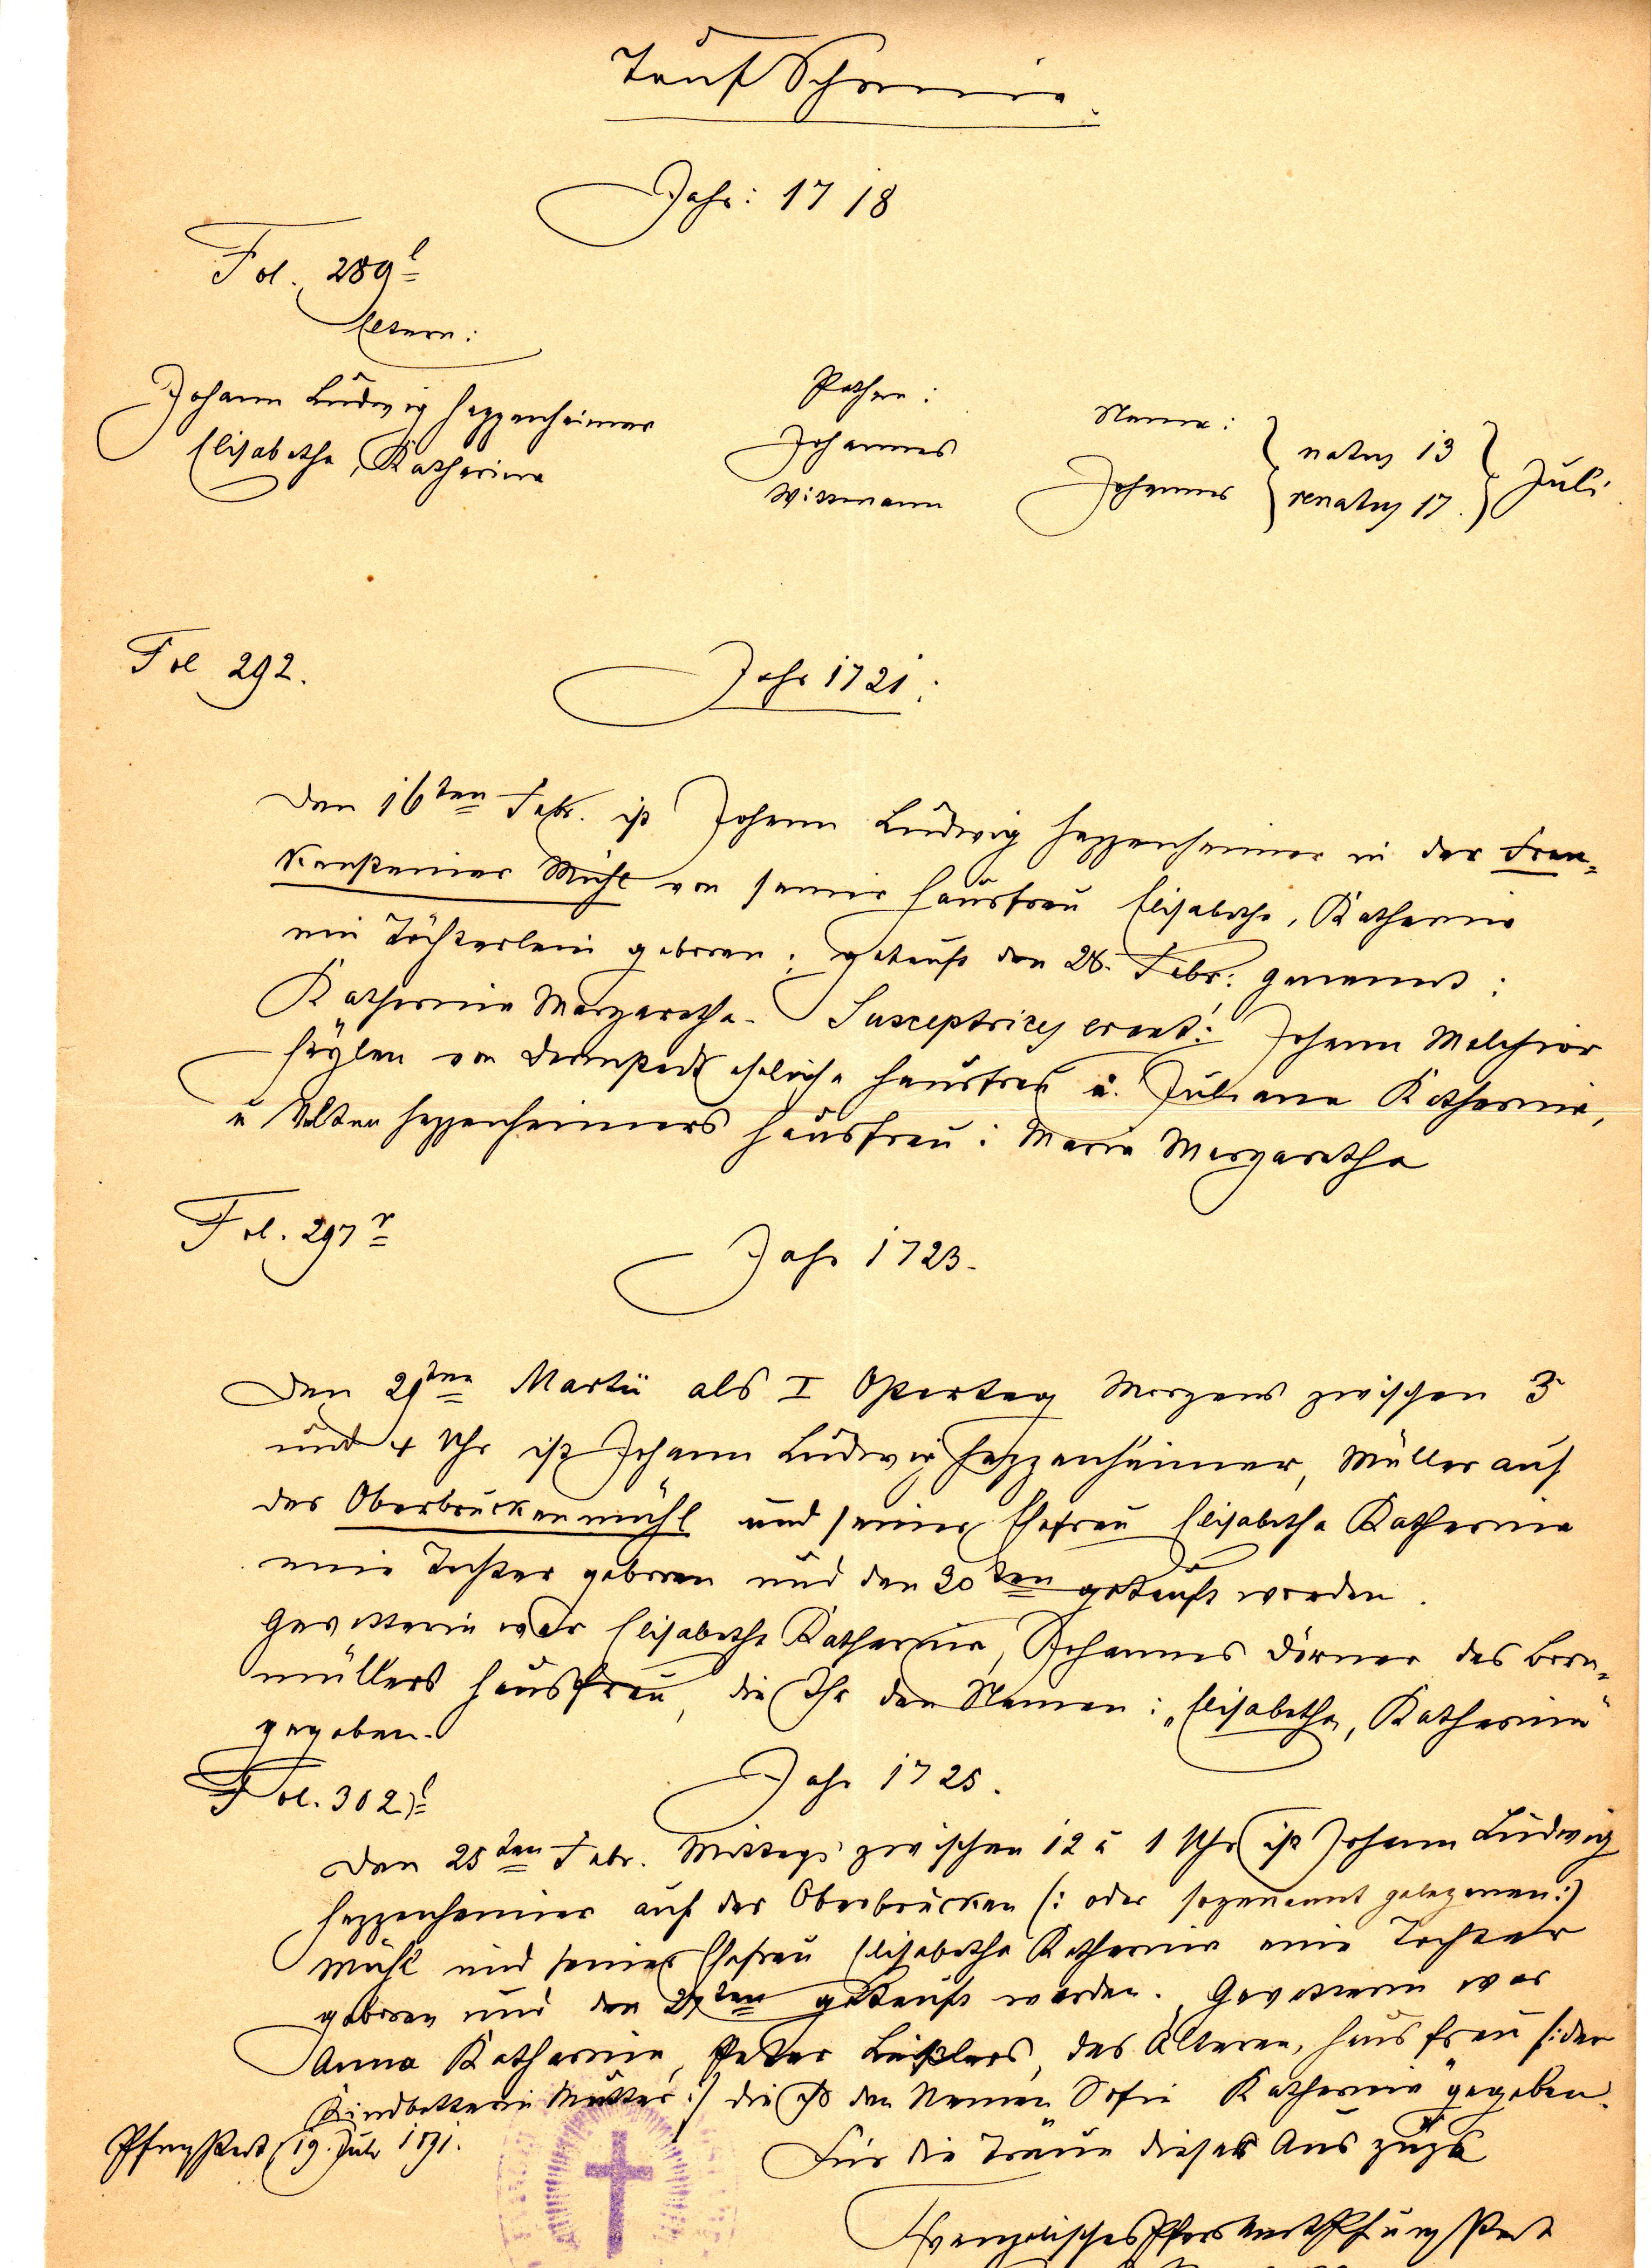 Taufscheine.
Jahr: 1718
Fol. 289 l
Eltern:
Johann Ludwig Heppenheimer
Elisabetha, Katharina
Pathen:
Johannes
Wissmann
Name:
Johannes
natus 13
renatus 17.
Juli
Fol 292.
Jahr 1721:
Den 16ten Febr. ist Johann Ludwig Heppenheimer in der Fran=
kensteiner Mühl von seiner Hausfrau Elisabetha, Katharina
ein Töchterlein geboren; getauft den 28. Febr: genannt:
Katharina Margaretha. Susceptrices erant: Johann Melchior
von Darmstadt eheliche Hausfrau u. Juliana Katharina,
u Velten Heppenheimers Hausfrau: Maria Margaretha
Fol. 297 r
Jahr 1723.
Den 29ten Martii als I Ostertag Morgens zwischen 3
und 4 Uhr ist Johann Ludwig Heppenheimer, Müller auf
der Oberbruckenmühl und seiner Ehefrau Elisabetha Katharina
eine Tochter geboren und den 30ten getauft worden.
Gevatterin war Elisabetha Katharina, Johannes Dörner des Born=
müllers Hausfrau, die Ihr den Namen: „Elisabetha, Katharina"
gegeben.
Fol. 302 l
Jahr 1725.
Den 25ten Febr. Mittags zwischen 12 u 1 Uhr ist Johann Ludwig
Heppenheimer auf der Oberbrucken (: oder sogenannt gelegenen:)
Mühl und seiner Ehefrau Elisabetha Katharina eine Tochter
geboren und den 27ten getauft worden. Gevatterin war
Anna Katharina, Peter Leißlers, des Älteren, Hausfrau /: der
Kindbetterin Mutter :/ die ihr den Namen Sofia Katharina" gegeben.
Pfungstadt 19. Juli 1891.
Für die Treue dieses Auszugs
Evangelisches Pfarramt Pfungstadt